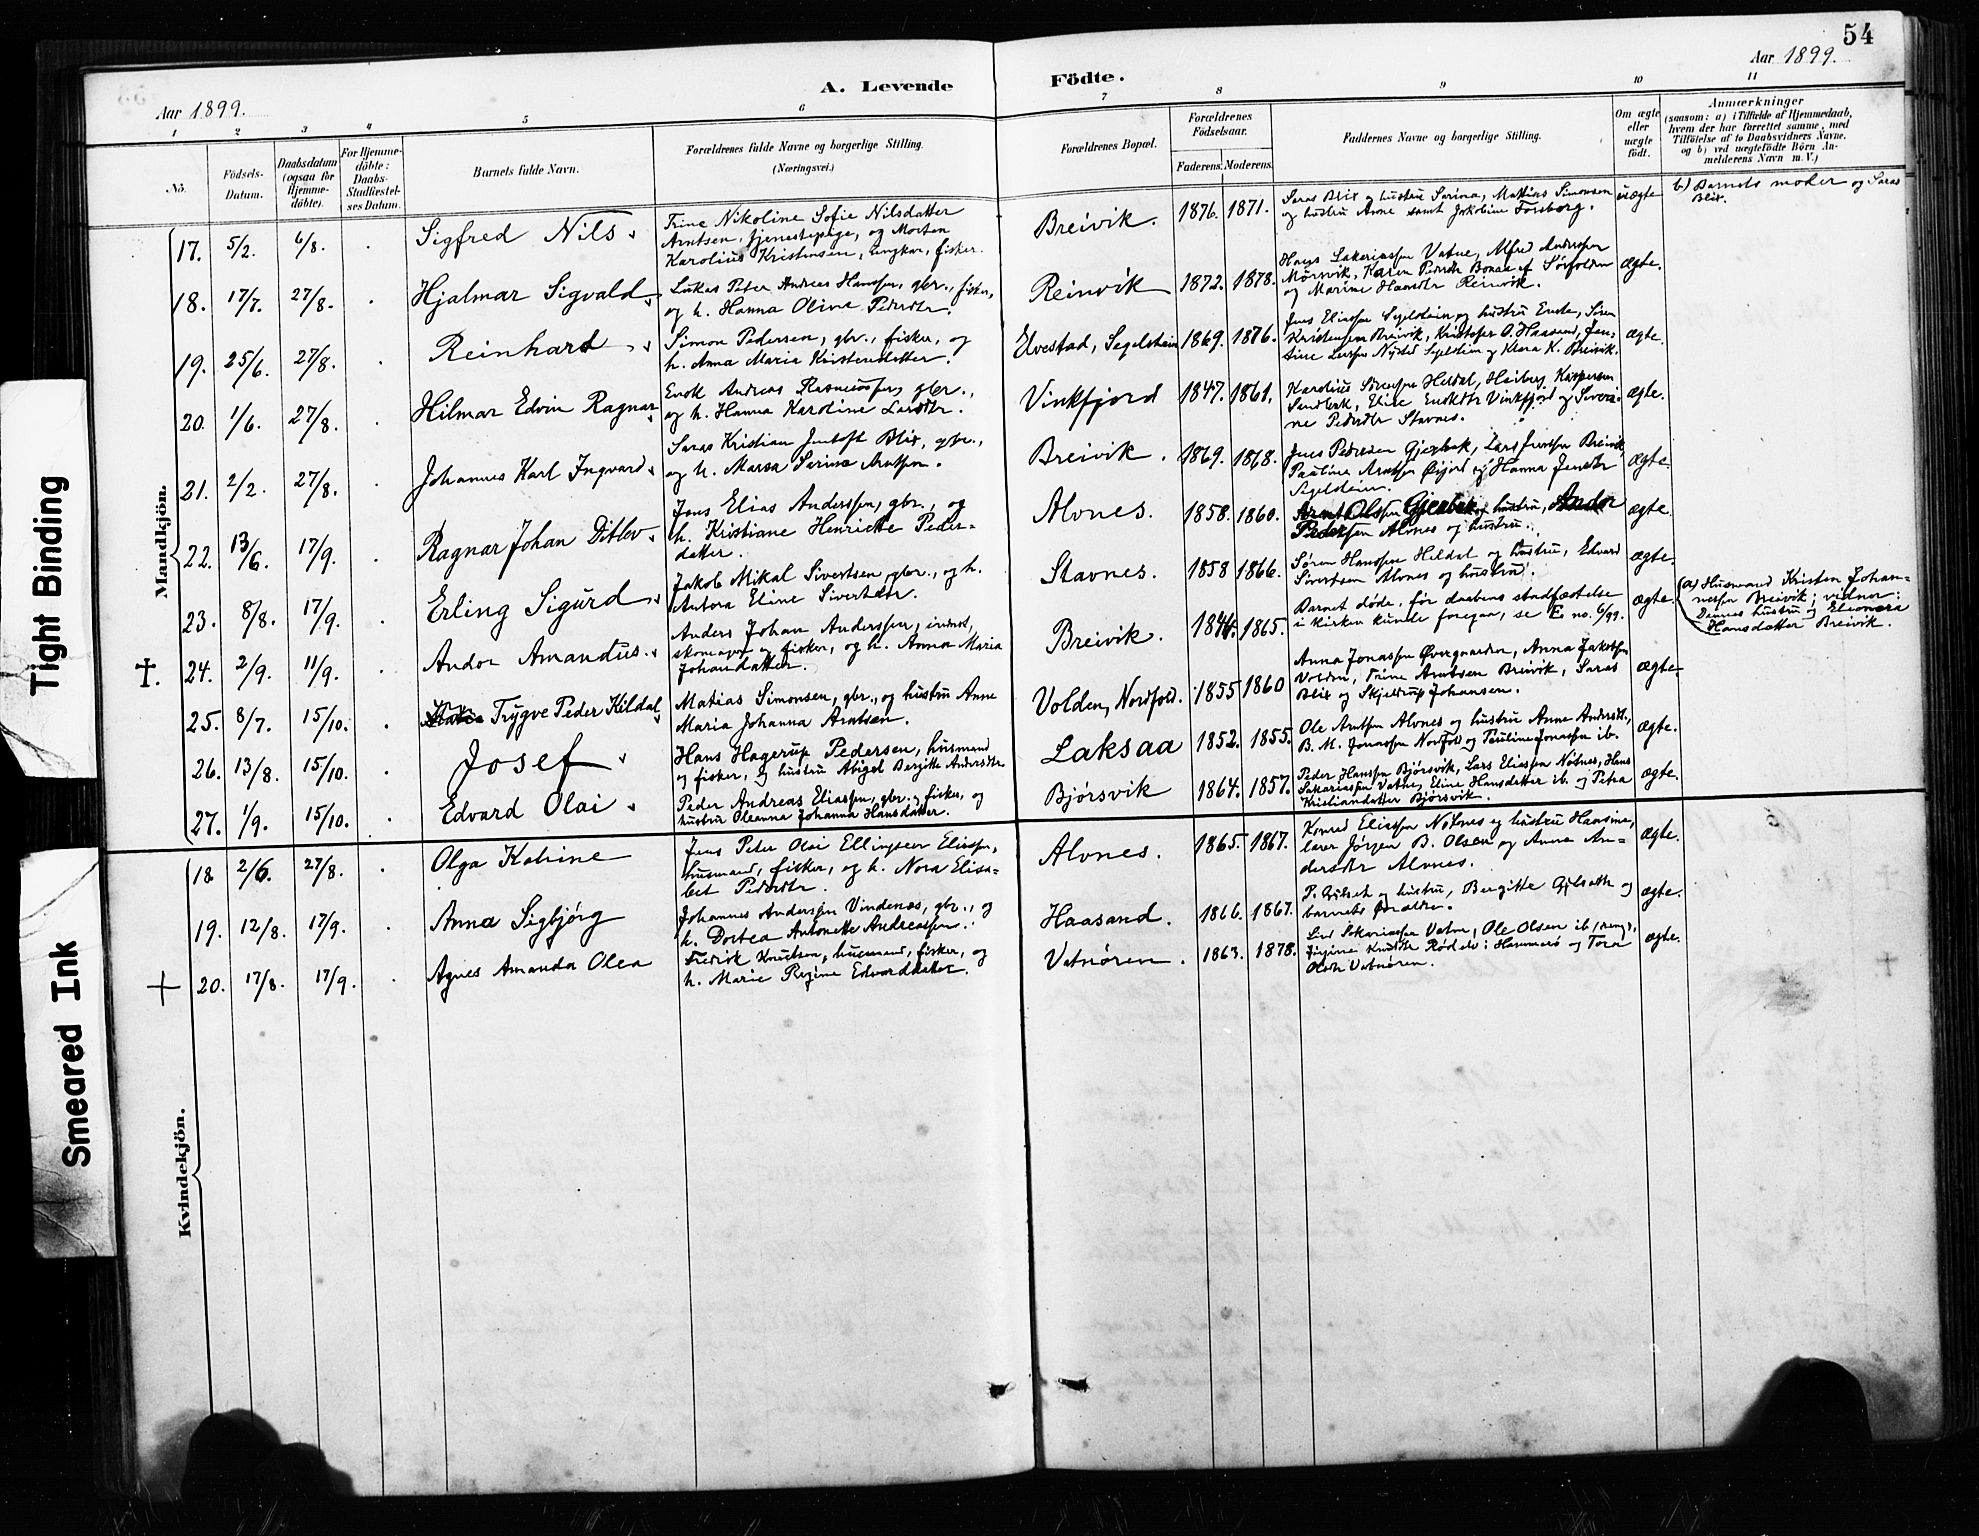 54
Aar 1899.
A. Levende
Födte.
Aar 1899.
1
2
3
4
5
6
7
8
9
10
11
No.
Födsels-
Datum.
Daabsdatum
(ogsaa for
Hjemme-
döbte).
For Hjemme-
döbte:
Daabs-
Stadfæstel-
ses Datum.
Barnets fulde Navn.
Forældrenes fulde Navne og borgerlige Stilling.
(Næringsvei.)
Forældrenes Bopæl.
Forældrenes
Födselsaar.
Faderens.
Moderens.
Faddernes Navne og borgerlige Stilling.
Om ægte
eller
uægte
födt.
Anmærkninger
(saasom: a) i Tilfælde af Hjemmedaab,
hvem der har forrettet samme, med
Tilföielse af to Daabsvidners Navne,
og b) ved uægtefödte Börn An-
melderens Navn m. V.)
Mandkjön.
17. 5/2. 6/8. Sigfred Nils
Trine Nikoline Sofie Nilsdatter
Arntsen, tjenestepige, og Morten
Karolius Kristensen, ungkar, fisker.
Breivik. 1876. 1871.
Saras Blix og hustru Serina, Mathias Simonsen
og hustru Anne samt Jakobine Forsberg.
uægte
b) Barnets moder og Saras
Blix.
18. 17/7. 27/8. Hjalmar Sigvald
Lukas Peter Andreas Hanssen, gbr., fisker,
og h. Hanna Olive Pedersdtr.
Reinvik 1872. 1878.
Hans Sakariassen Vatne, Alfred Anderssen
Mørsvik, Karen Pedersdtr Bonaa af Sørfolden
og Marine Hansdtr Reinvik.
ægte.
19. 25/6. 27/8. Reinhard
Simon Pedersen, gbr., fisker, og
h. Anna Maria Kristensdatter.
Evestad, Segelstein 1869. 1876.
Jens Eliassen Segelstein og hustru Enda, Sören
Kristensen Breivik, Kristofer O. Haasand, Jen-
sine Larssen Nystad Segelstein og Klara K. Breivik.
ægte.
20. 1/6. 27/8. Hilmar Edvin Ragnar
Enok Andreas Rasmussen, gbr.,
og h. Hanna Karoline Larsdtr.
Vinkfjord 1847. 1861.
Karolius Sörensen Heldal, Heiberg Kaspersen
Sandbak, Eline Enoksdtr Vinkfjord og Severi-
ne Pedersdtr Stavnes.
ægte.
21. 2/2. 27/8. Johannes Karl Ingvard
Saras Kristian Jentoft Blix, gbr.,
og h. Marsa Serine Arntsen.
Breivik. 1869. 1868.
Jens Pedersen Gjerbak, Lars Jenssen Breivik
Pauline Arntsen Øijord og Hanna Jensdtr
Segelstein.
ægte.
22. 13/6. 17/9. Ragnar Johan Ditlev
Jens Elias Anderssen, gbr., og
h. Kristiane Henriette Peder-
datter.
Alvnes. 1858. 1860.
Arnt Olssen Gjerbak og hustru, Andor
Pedersen Alvnes og hustru.
ægte.
23. 8/8. 17/9. Erling Sigurd
Jakob Mikal Sivertsen, gbr., og h.
Antora Eline Sivertsdtr.
Stavnes. 1858 1866.
Sören Hanssen Heldal og hustru, Edvard
Sivertsen Alvnes og hustru.
ægte.
†. 24. 2/9. 11/9. Andor Amandus
Anders Johan Anderssen, inderst,
skomager og fisker, og h. Anna Maria
Johansdatter.
Breivik. 1844. 1865.
Barnet döde, för daabens stadfæstelse
i kirken kunde foregaa, se E no. 6/99.
ægte.
(a) Husmand Kristen Johan-
nessen Breivik; vidner:
Dennes hustru og Eleonora
Hansdatter Breivik.
25. 8/7. 15/10. Trygve Peder Kildal
Matias Simonsen, gbr., og hustru Anne
Maria Johanna Arntsen.
Volden, Nordfold. 1855 1860
Anna Jonassen Øvergaarden, Anna Jakobsen
Volden, Trine Arntsen Breivik, Saras
Blix og Skjeldrup Johansen.
ægte
26. 13/8. 15/10. Josef
Hans Hagerup Pedersen, husmand
og fisker, og hustru Abigel Bergitte Andersdtr
Laksaa 1852. 1855.
Ole Arntsen Alvnes og hustru Anne Andersdtr.,
B. M. Jonassen Nordfold og Pauline Jonassen ib.
ægte.
27. 1/9. 15/10. Edvard Olai
Peder Andreas Eliassen, gbr. og fisker, og
hustru Oleanna Johanna Hansdatter.
Bjørsvik 1864. 1857.
Peder Hanssen Bjørsvik, Lars Eliassen Nötnes, Hans
Sakariassen Vatne, Eline Hansdatter ib. og Petra
Kristiandatter Bjørsvik.
ægte.
Kvindekjön.
18 2/6. 27/8. Olga Katrine
Jens Peter Olai Ellingsen Eliassen,
husmand, fisker, og h. Nora Elisa-
bet Pedersdtr.
Alvnes. 1865. 1867.
Konrad Eliassen Nötnes og hustru Hansine,
lærer Jörgen B. Olsen og Anna An-
dersdtr Alvnes.
ægte.
19. 12/8. 17/9. Anna Sigbjørg
Johannes Anderssen Vindenæs, gbr., og
h. Dortea Antonette Andreassen.
Haasand. 1866. 1867.
P. Gylseth og hustru, Bergitte Gylseth og
barnets forældre.
ægte.
† 20. 17/8. 17/9. Agnes Amanda Olea
Fredrik Knutsen, husmand, fisker, og
h. Marie Regine Edvardsdatter.
Vatnören. 1863. 1878.
Sakariassen Vatne, Ole Olsen ib.
Knutsdtr Hammerö og Tora
Olsdtr Vatnören.
ægte.
Tight Binding
Smeared Ink